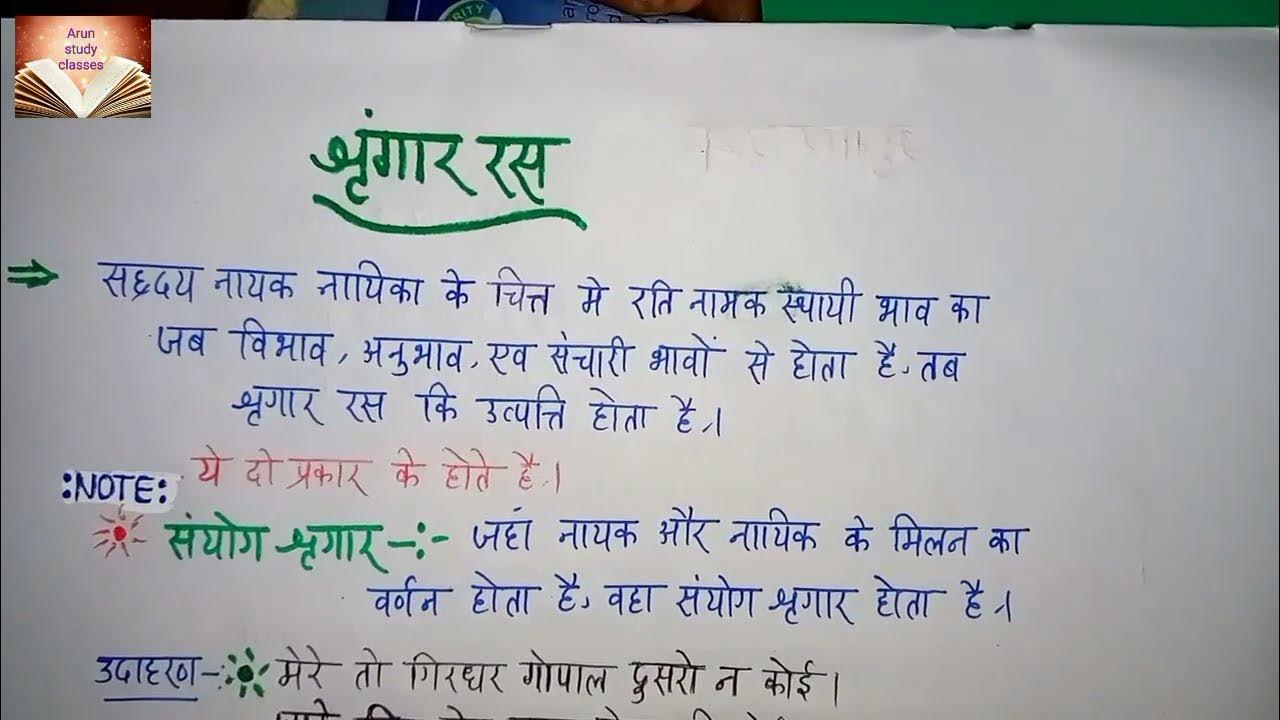 RITY
Arun
study
classes
श्रृंगार रस
⇒ सह्रदय नायक नायिका के चित्त मे रति नामक स्थायी भाव का
जब विभाव, अनुभाव, एव संचारी भावों से होता है, तब
श्रृगार रस कि उत्पत्ति होता है।
:NOTE: ये दो प्रकार के होते है।
संयोग श्रृगार -:- जहां नायक और नायिक के मिलन का
वर्णन होता है, वहा संयोग श्रृगार होता है।
उदाहरण - मेरे तो गिरधर गोपाल दुसरो न कोई।